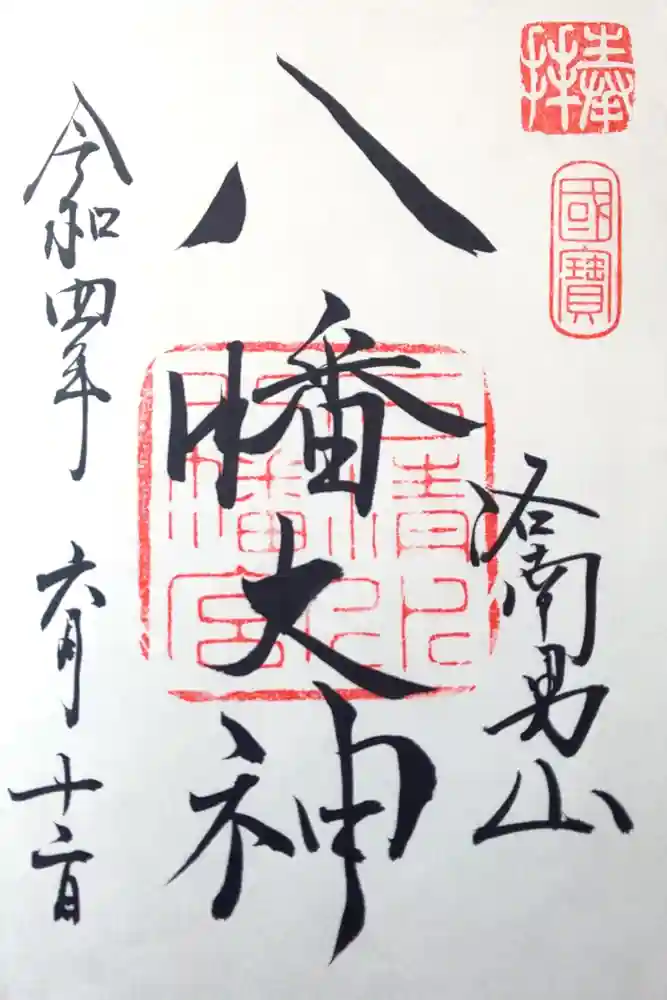 奉拝
國寶
洛南男山
八幡大神
石清水
八幡宮
令和四年 六月十二日